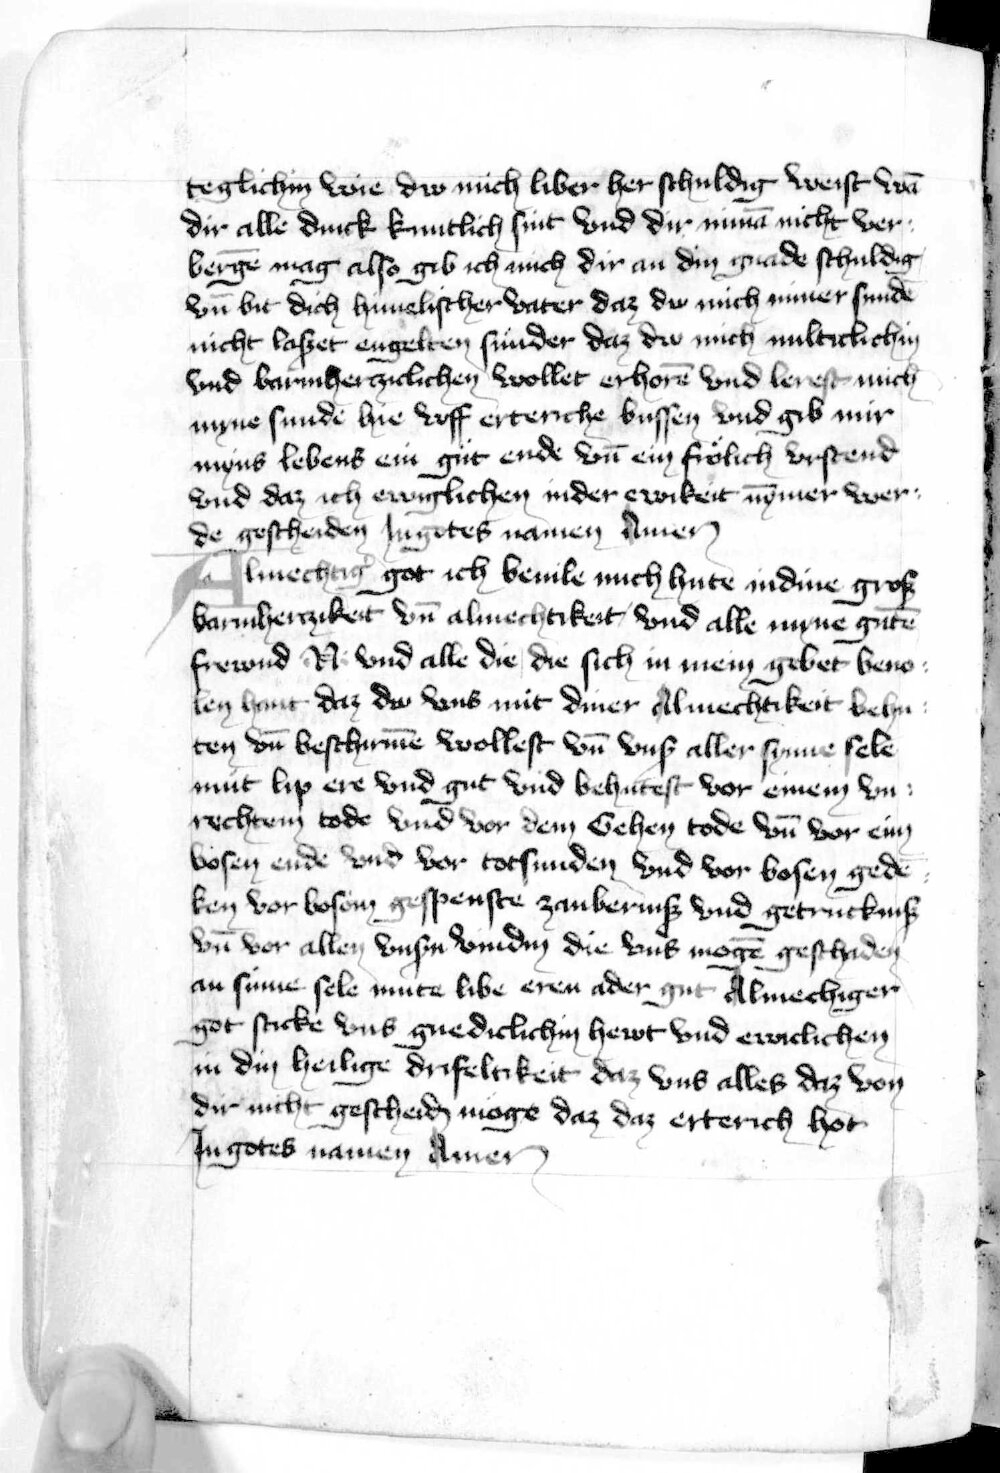 teglichin wie dw mich liber her schuldig weist wā
dir alle dinck kuntlich sint vnd dir nimā nicht ver:
bergē mag also gib ich mich dir an din gnade schuldig
vn̄ bit dich himelischer vater daz dw mich miner sunde
nicht laßet engelten sunder daz dw mich milticlichin
vnd barmherzciclichen wollet erhorē vnd lerest mich
myne sunde hie vff erteriche bussen vnd gib mir
myns lebens ein gut ende vn̄ ein frölich vrstend
vnd daz ich ewiglichen inder ewikeit nȳmer wer:
de gescheiden In gotes namen Amen
Almechtig' got ich beuile mich hute indine groß
barmherczikeit vn̄ almechtikeit vnd alle myne gutē
frewnd N· vnd alle die die sich in mein gebet beuo:
len hant daz dw vns mit diner Almechtikeit behu:
ten vn̄ beschirmē wollest vn̄ vnß aller synne sele
mut lip ere vnd gut vnd behutest vor einem vn:
rechtem tode vnd vor dem Gehen tode vn̄ vor eim
bösen ende vnd vor totsunden vnd vor bosen gedē:
ken vor bosem gespenste zauberniß vnd getrückniß
vn̄ vor allen vnsn vindin die vns mogē geschaden
an sinne sele mute libe eren ader gut Almechiger
got sticke vns gnediclichin hewt vnd ewiclichen
in din heilige drifeltikeit daz vns alles daz von
dir nicht gescheidn möge daz daz erterich hot
In gotes namen Amen